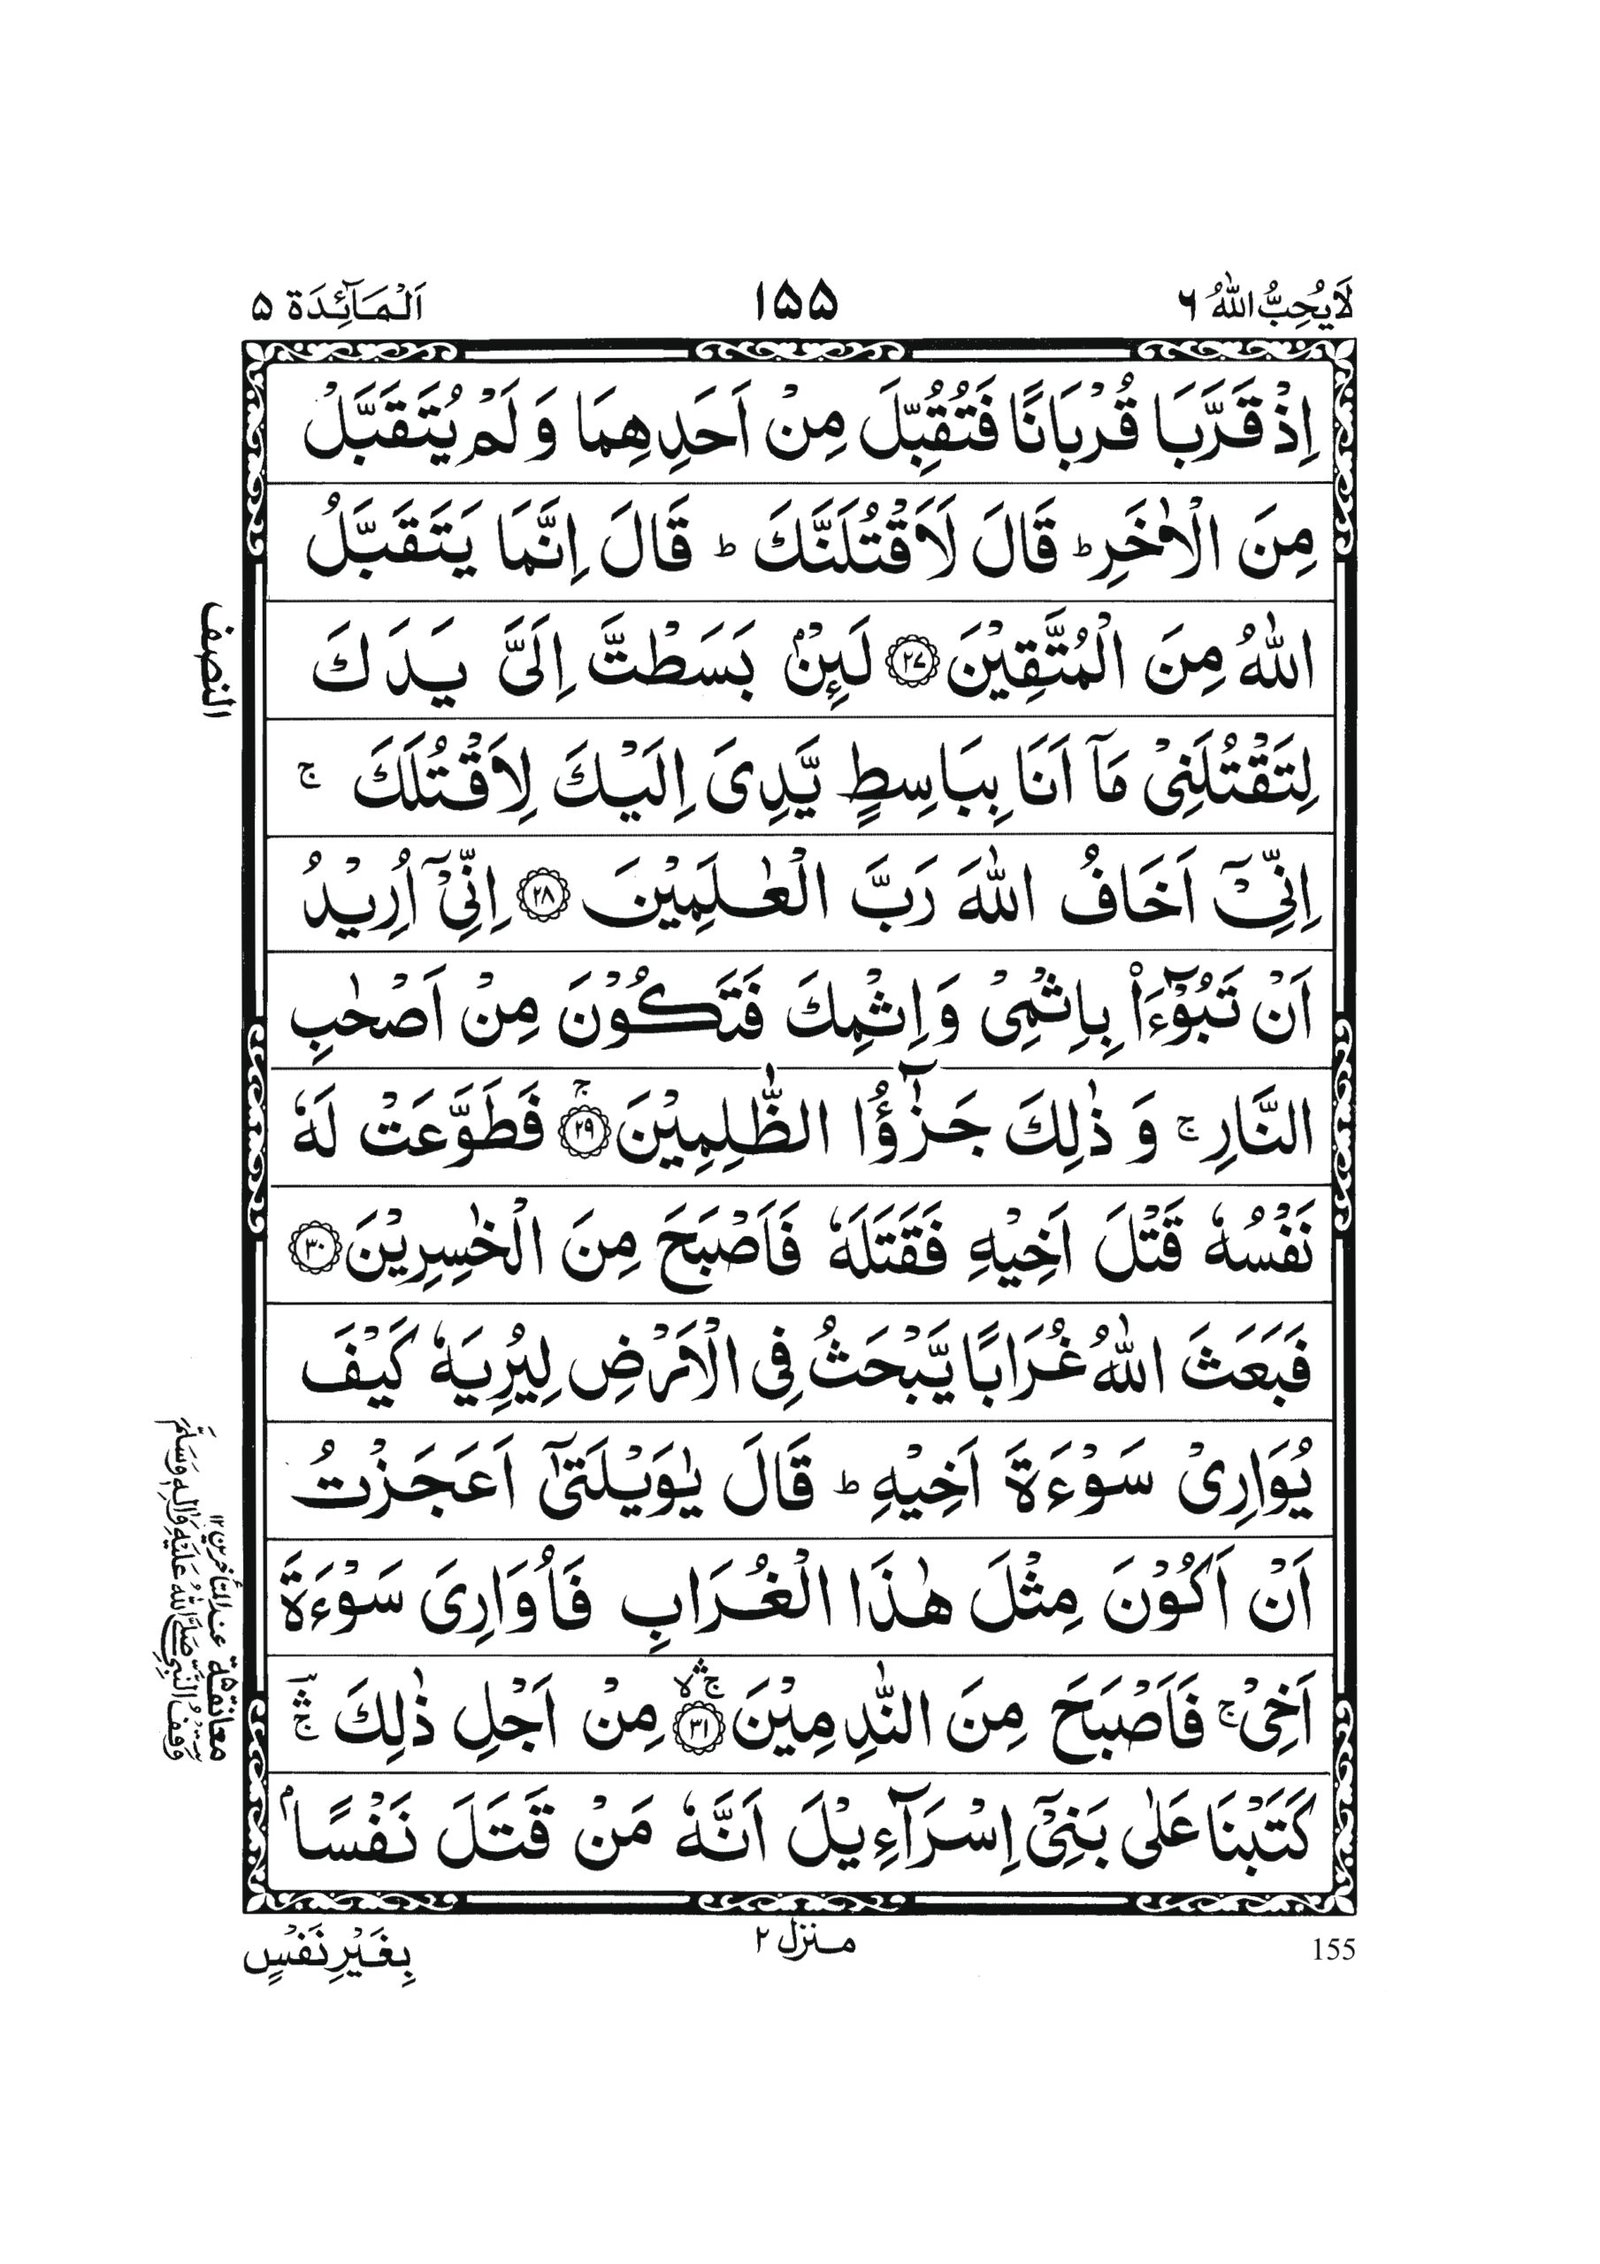 لَا يُحِبُّ اللّٰهُ ٦
١٥٥
اَلْمَآئِدَة ٥
اِذْ قَرَّبَا قُرْبَانًا فَتُقُبِّلَ مِنْ اَحَدِهِمَا وَ لَمْ يُتَقَبَّلْ
مِنَ الْاٰخَرِ ؕ قَالَ لَاَقْتُلَنَّكَ ؕ قَالَ اِنَّمَا يَتَقَبَّلُ
اللّٰهُ مِنَ الْمُتَّقِيْنَ ﴿۲۷﴾ لَئِنْۢ بَسَطْتَّ اِلَيَّ يَدَكَ
لِتَقْتُلَنِيْ مَاۤ اَنَا بِبَاسِطٍ يَّدِيَ اِلَيْكَ لِاَقْتُلَكَ ۚ
اِنِّيْۤ اَخَافُ اللّٰهَ رَبَّ الْعٰلَمِيْنَ ﴿۲۸﴾ اِنِّيْۤ اُرِيْدُ
اَنْ تَبُوْٓءَا۟ بِاِثْمِيْ وَ اِثْمِكَ فَتَكُوْنَ مِنْ اَصْحٰبِ
النَّارِ ۚ وَ ذٰلِكَ جَزٰٓؤُا الظّٰلِمِيْنَ ﴿۲۹﴾ۚ فَطَوَّعَتْ لَهٗ
نَفْسُهٗ قَتْلَ اَخِيْهِ فَقَتَلَهٗ فَاَصْبَحَ مِنَ الْخٰسِرِيْنَ ﴿۳۰﴾
فَبَعَثَ اللّٰهُ غُرَابًا يَّبْحَثُ فِي الْاَرْضِ لِيُرِيَهٗ كَيْفَ
يُوَارِيْ سَوْءَةَ اَخِيْهِ ؕ قَالَ يٰوَيْلَتٰۤى اَعَجَزْتُ
اَنْ اَكُوْنَ مِثْلَ هٰذَا الْغُرَابِ فَاُوَارِيَ سَوْءَةَ
اَخِيْ ۚ فَاَصْبَحَ مِنَ النّٰدِمِيْنَ ﴿۳۱﴾ۚۛۙ مِنْ اَجْلِ ذٰلِكَ ۚۛ
كَتَبْنَا عَلٰى بَنِيْۤ اِسْرَآءِيْلَ اَنَّهٗ مَنْ قَتَلَ نَفْسًۢا
النصف
معانقة ٥ عند المتأخرين ١٢
وقف النبي صَلَّى اللّٰهُ عَلَيْهِ وَاٰلِهٖ وَسَلَّمَ
بِغَيْرِ نَفْسٍ
منزل ٢
155